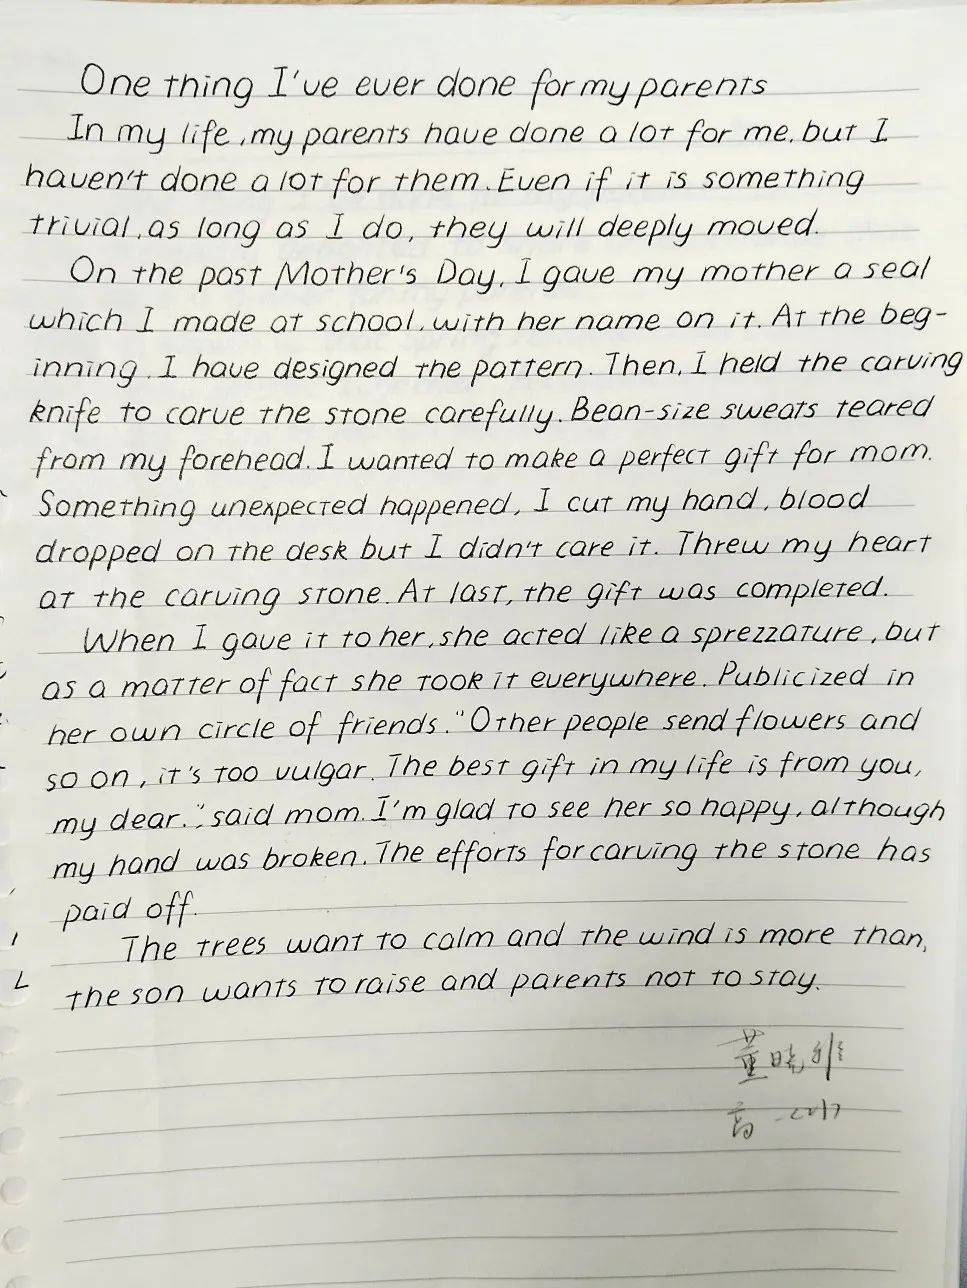 One thing I've ever done for my parents
In my life, my parents have done a lot for me, but I
haven't done a lot for them. Even if it is something
trivial, as long as I do, they will deeply moved.
On the past Mother's Day, I gave my mother a seal
which I made at school, with her name on it. At the beg-
inning, I have designed the pattern. Then, I held the carving
knife to carve the stone carefully. Bean-size sweats teared
from my forehead. I wanted to make a perfect gift for mom.
Something unexpected happened, I cut my hand, blood
dropped on the desk but I didn't care it. Threw my heart
at the carving stone. At last, the gift was completed.
When I gave it to her, she acted like a sprezzature, but
as a matter of fact she took it everywhere. Publicized in
her own circle of friends. "Other people send flowers and
so on, it's too vulgar. The best gift in my life is from you,
my dear.", said mom. I'm glad to see her so happy, although
my hand was broken. The efforts for carving the stone has
paid off.
The trees want to calm and the wind is more than,
the son wants to raise and parents not to stay.
董晓
高